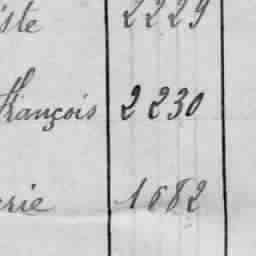 iste 2229
François 2230
erie 1682